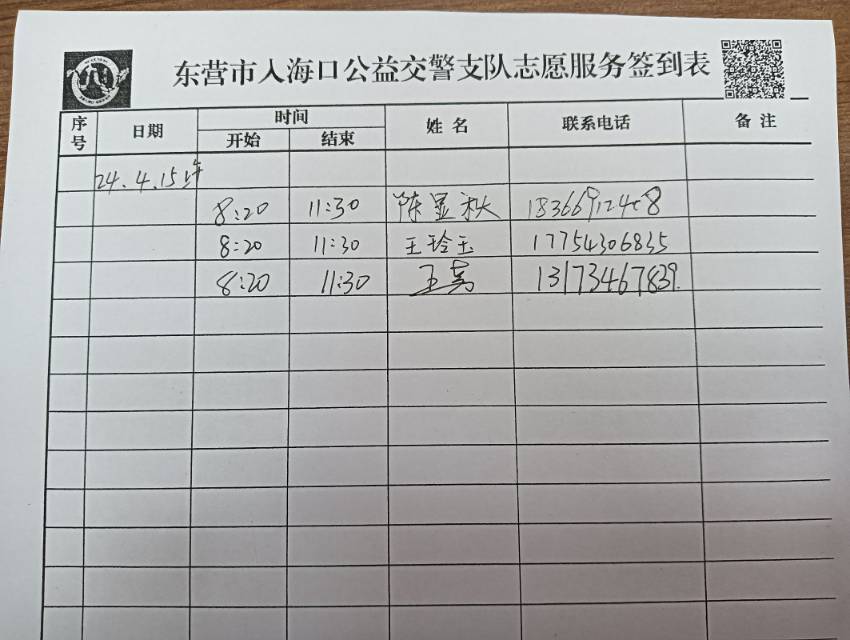 东营市入海口公益交警支队志愿服务签到表
序号 日期 时间 姓名 联系电话 备注
开始 结束
24.4.15上午
8:20 11:30 陈显秋
8:20 11:30 王玲玉 17754306835
8:20 11:30 13173467839.